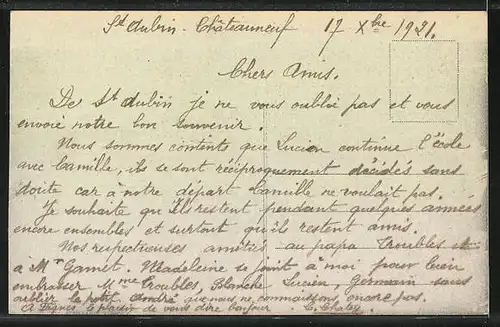 St Aubin. Châteauneuf 17 Xbre 1921.
Chers Amis.
De St Aubin je ne vous oublie pas et vous
envoie notre bon souvenir.
Nous sommes contents que Lucien continue l'école
avec Camille, ils se sont réciproquement décidés sans
doute car à notre départ Camille ne voulait pas.
Je souhaite qu'Ils restent pendant quelques années
encore ensembles et surtout qu'ils restent amis.
Nos respectueuses amitiés au papa Troubles et
a Mr Gamet. Madeleine se joint à moi pour bien
embrasser Mme Troubles, Blanche Lucien, Germain sans
oublier le petit André que nous ne connaissons encore pas.
le plaisir de vous dire bonjour